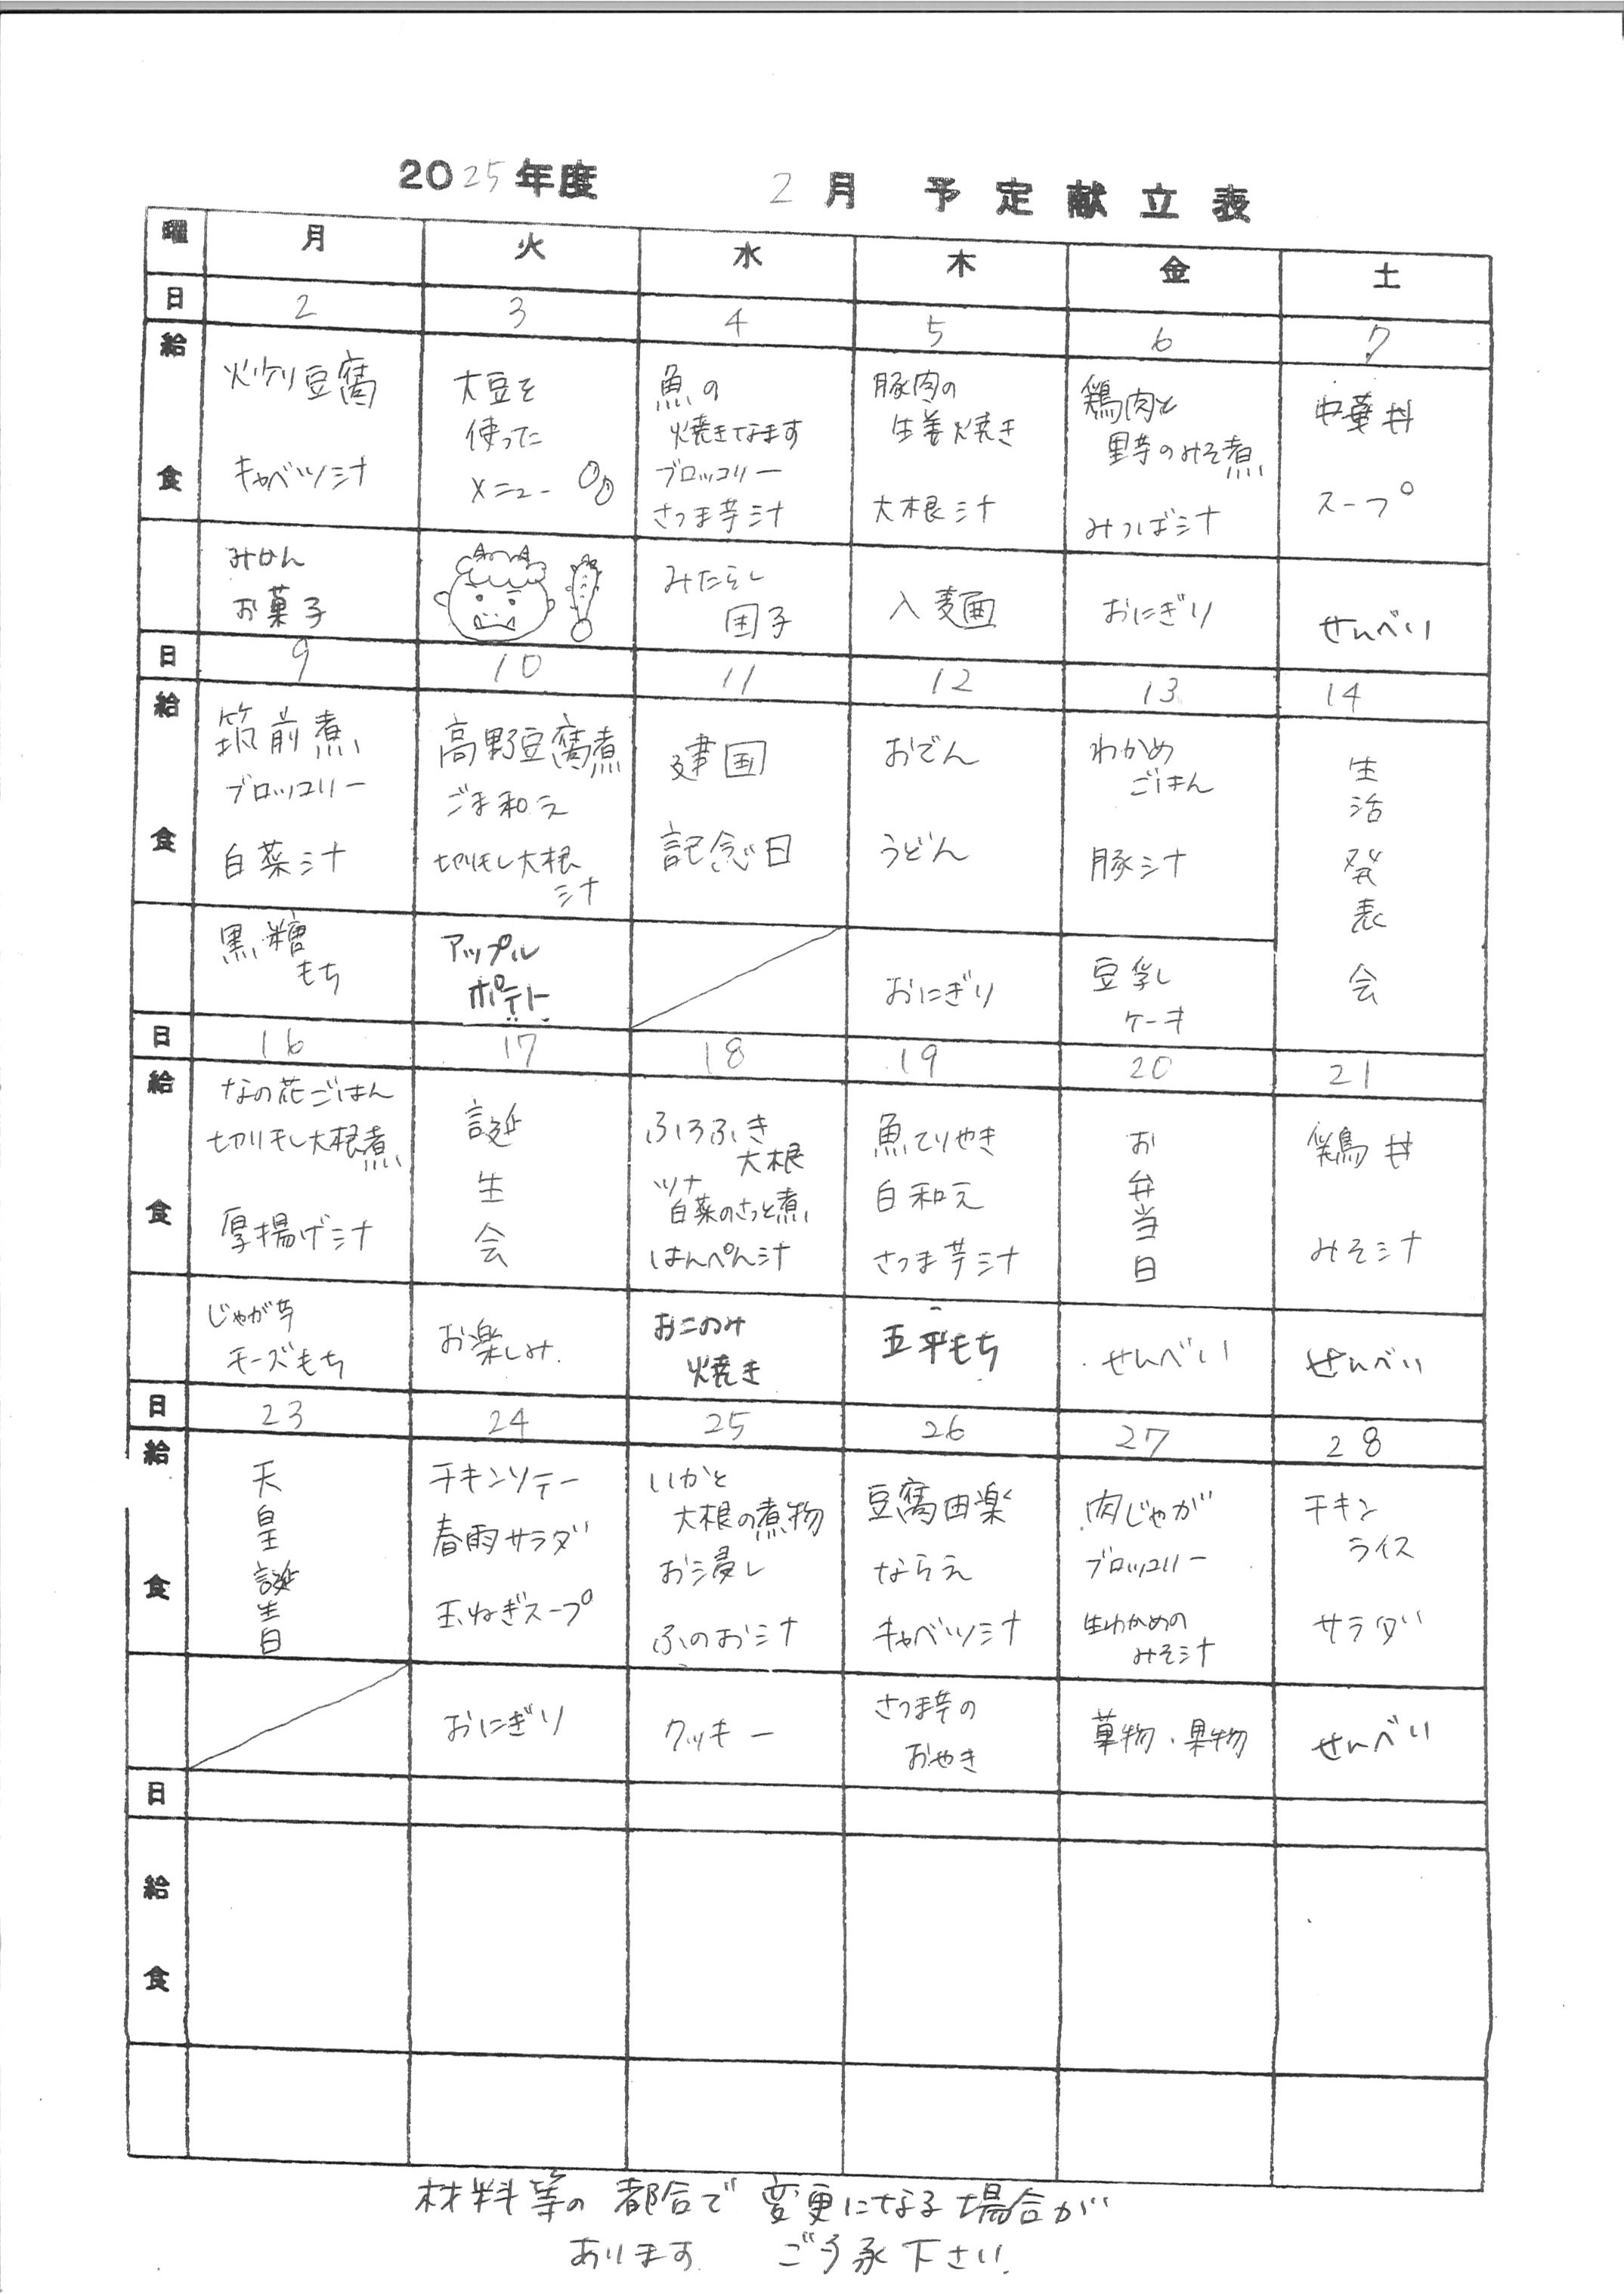 2025年度 2月 予定献立表
曜 月 火 水 木 金 土
日 2 3 4 5 6 7
給食
炒り豆腐
キャベツ汁
大豆を
使った
メニュー
魚の
焼きなます
ブロッコリー
さつま芋汁
豚肉の
生姜焼き
大根汁
鶏肉と
里芋のみそ煮
みつば汁
中華丼
スープ
みかん
お菓子
みたらし
団子
入麺
おにぎり
せんべい
日 9 10 11 12 13 14
給食
筑前煮
ブロッコリー
白菜汁
高野豆腐煮
ごま和え
切りモし大根
汁
建国
記念日
おでん
うどん
わかめ
ごはん
豚汁
生活発表会
黒糖
もち
アップル
ポテト
おにぎり
豆乳
ケーキ
日 16 17 18 19 20 21
給食
なの花ごはん
切りモし大根煮
厚揚げ汁
誕生会
ふろふき
大根
ツナ
白菜のさっと煮
はんぺん汁
魚てりやき
白和え
さつま芋汁
お弁当日
鶏丼
みそ汁
じゃが芋
チーズもち
お楽しみ
おこのみ
焼き
五平もち
せんべい
せんべい
日 23 24 25 26 27 28
給食
天皇誕生日
チキンソテー
春雨サラダ
玉ねぎスープ
いかと
大根の煮物
お浸し
ふのお汁
豆腐田楽
キャベツ汁
肉じゃが
ブロッコリー
生わかめの
みそ汁
チキン
ライス
サラダ
おにぎり
クッキー
さつま芋の
おやき
菓物・果物
せんべい
日
給食
材料等の都合で変更になる場合が
あります ご了承下さい.